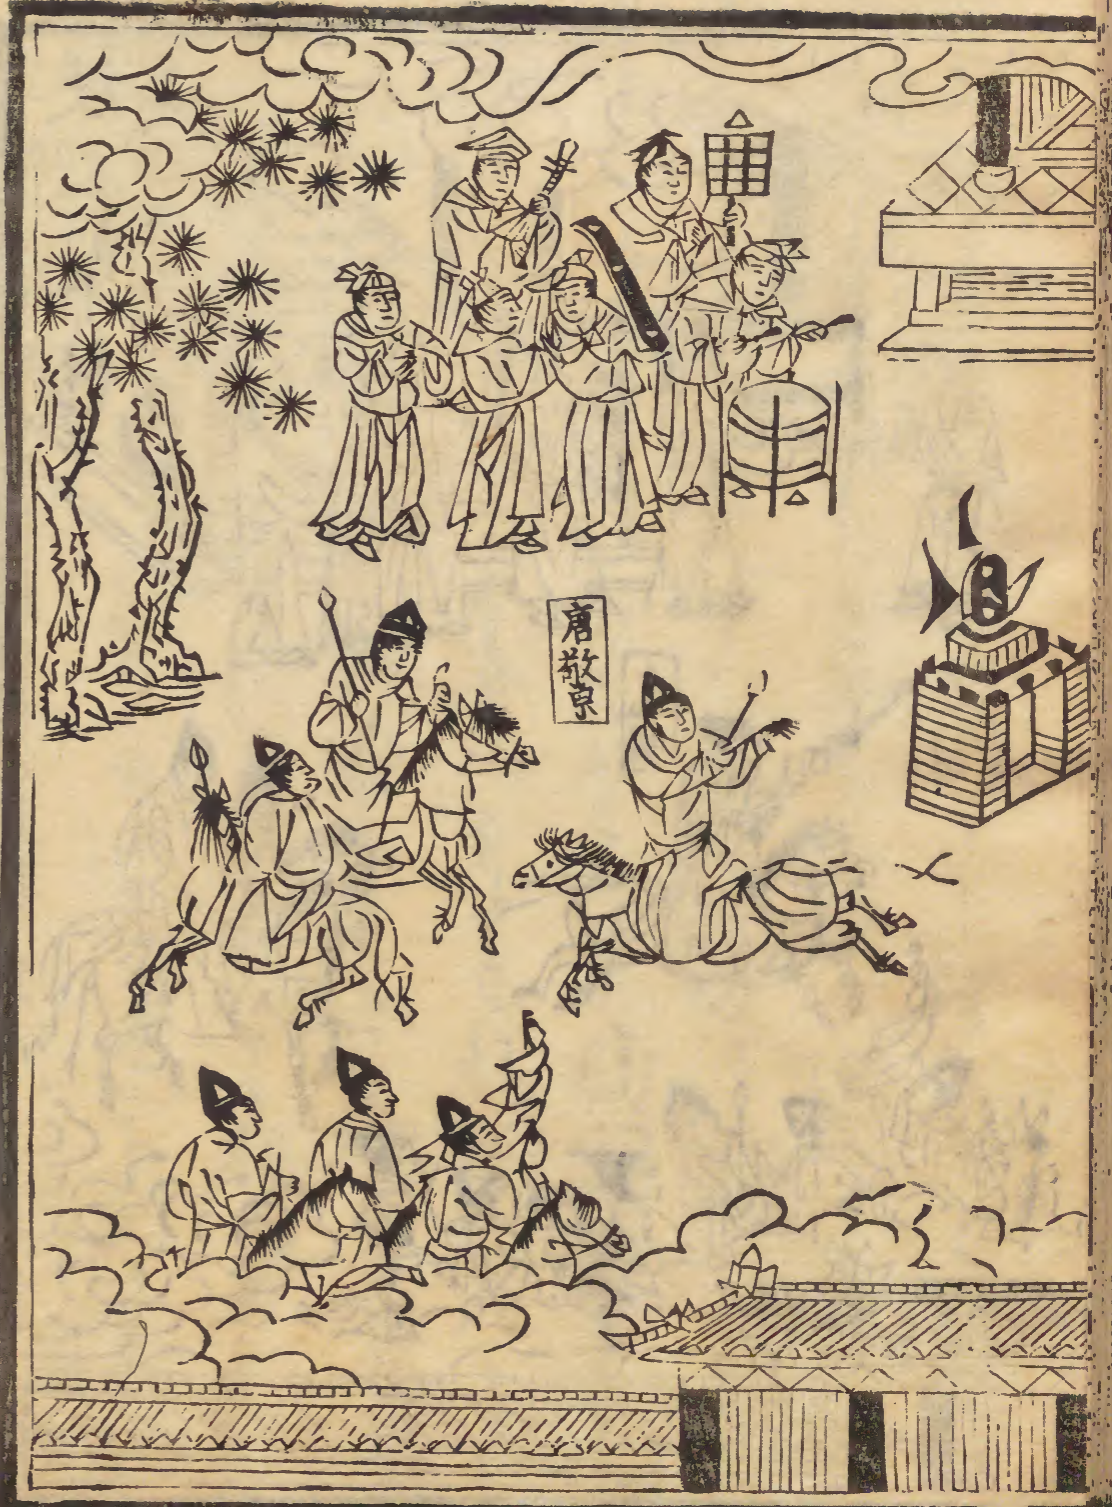 唐敬宗